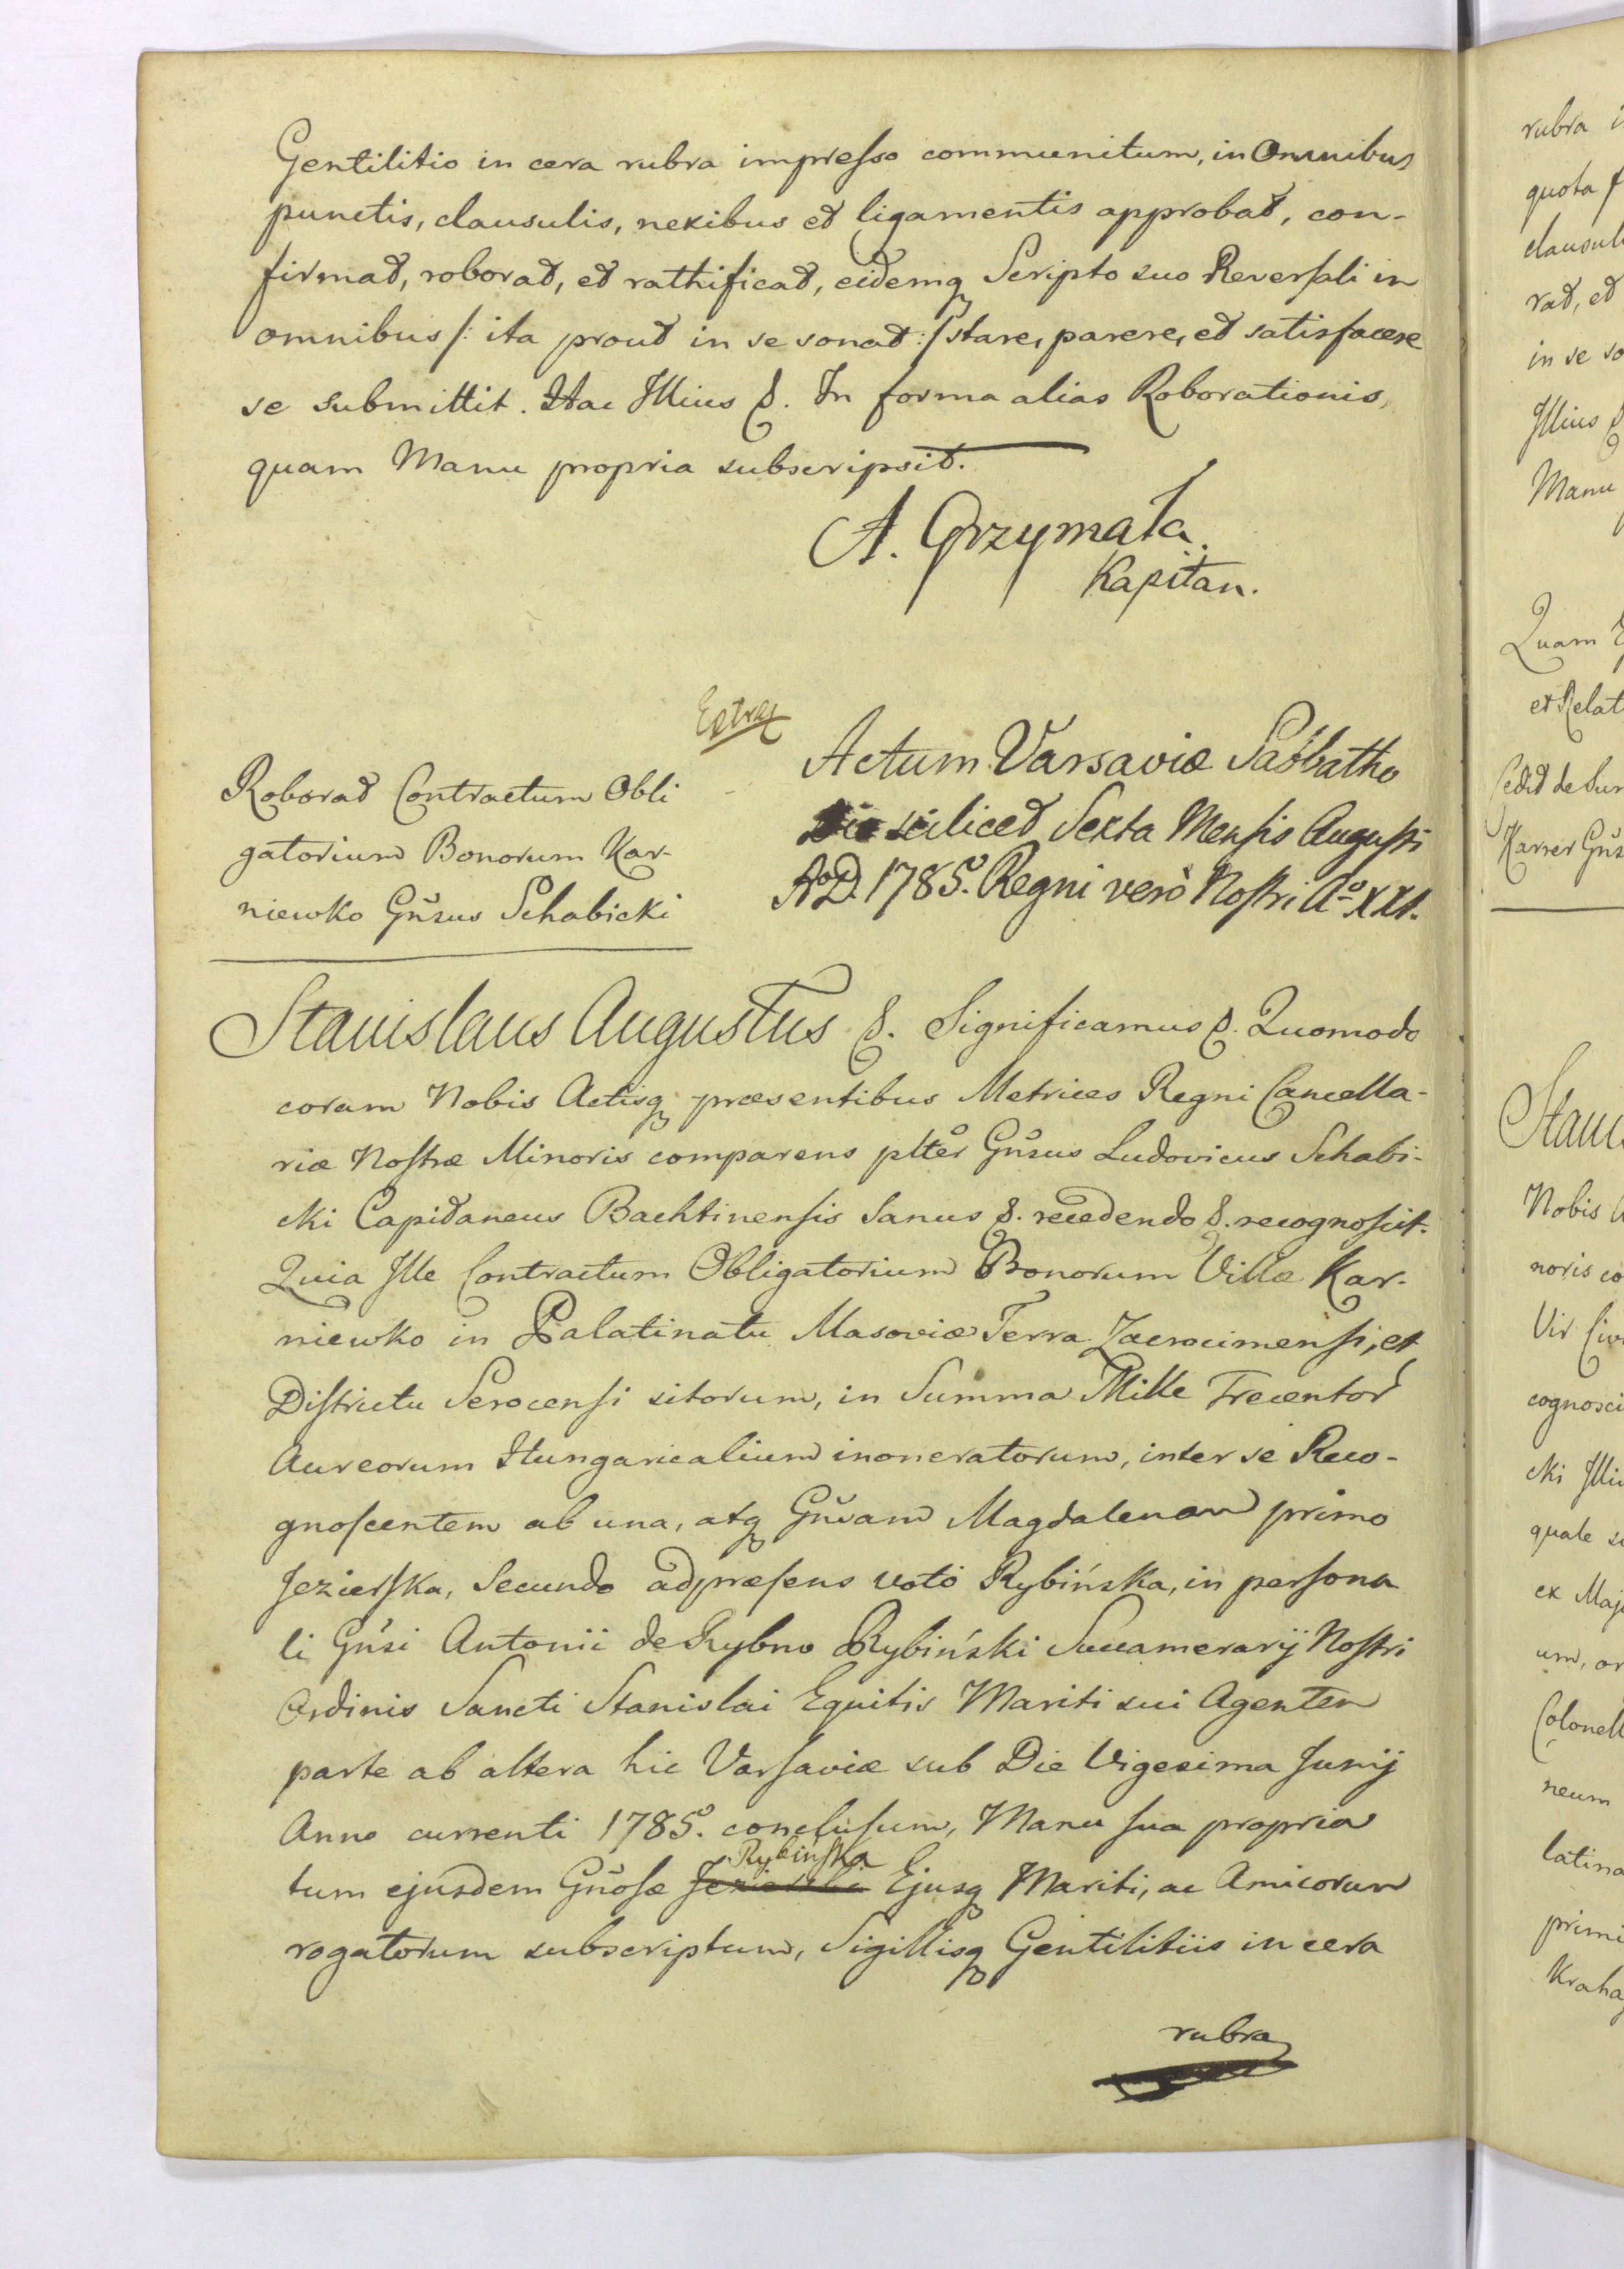 Gentilitio in cera rubra impresso communitum, in Omnibus
punctis, clausulis, nexibus et ligamentis approbat, con-
firmat, roborat, et rathificat, eidemq Scripto suo Reversali in
omnibus /: ita prout in se sonat :/ stare, parere, et satisfacere
se submittit. Hac Illius &. In forma alias Roborationis,
quam Manu propria subscripsit.
A. Grzymała.
Kapitan.
Extrax
Roborat Contractum Obli
gatorium Bonorum Kar-
niewko Gñsus Schabicki
Actum Varsaviæ Sabbatho
Die scilicet Sexta Mensis Augusti
AoD. 1785o. Regni verò Nostri Ao XXI.
Stanislaus Augustus &. Significamus &. Quomodo
coram Nobis Actisq præsentibus Metrices Regni Cancella-
riæ Nostræ Minoris comparens plter Gñsus Ludovicus Schabi-
cki Capitaneus Bachtinensis Sanus &. recedendo &. recognoscit.
Quia Ille Contractum Obligatorium Bonorum Villæ Kar-
niewko in Palatinatu Masoviæ Terra Zacrocimensi, et
Districtu Serocensi sitorum, in Summa Mille Trecentor
Aureorum Hungaricalium inoneratorum, inter se Reco-
gnoscentem ab una, atq Gñsam Magdalenam primo
Jezierska, Secundo adpræsens voto Rybińska, in persona
li Gñsi Antonii de Rybno Rybiński Succamerarij Nostri
Ordinis Sancti Stanislai Equitis Mariti sui Agentem
parte ab altera hic Varsaviæ sub Die Vigesima Junij
Anno currenti 1785o. conclusum, Manu sua propria
Rybińska
tum ejusdem Gñosæ Jezierska Ejusq Mariti, ac Amicorum
rogatorum subscriptum, Sigillisq Gentilitiis in cera
rubra
rubra
quota
clausul
rat, et
in se so
Illius
Manu
Quam
et Relat
Cedit de Sum
Karver Gñs
Stanis
Nobis
noris co
Vir
cognosci
cki Illiu
quale
ex Maj
um, or
Colonell
neum
latina
primi
Kraha